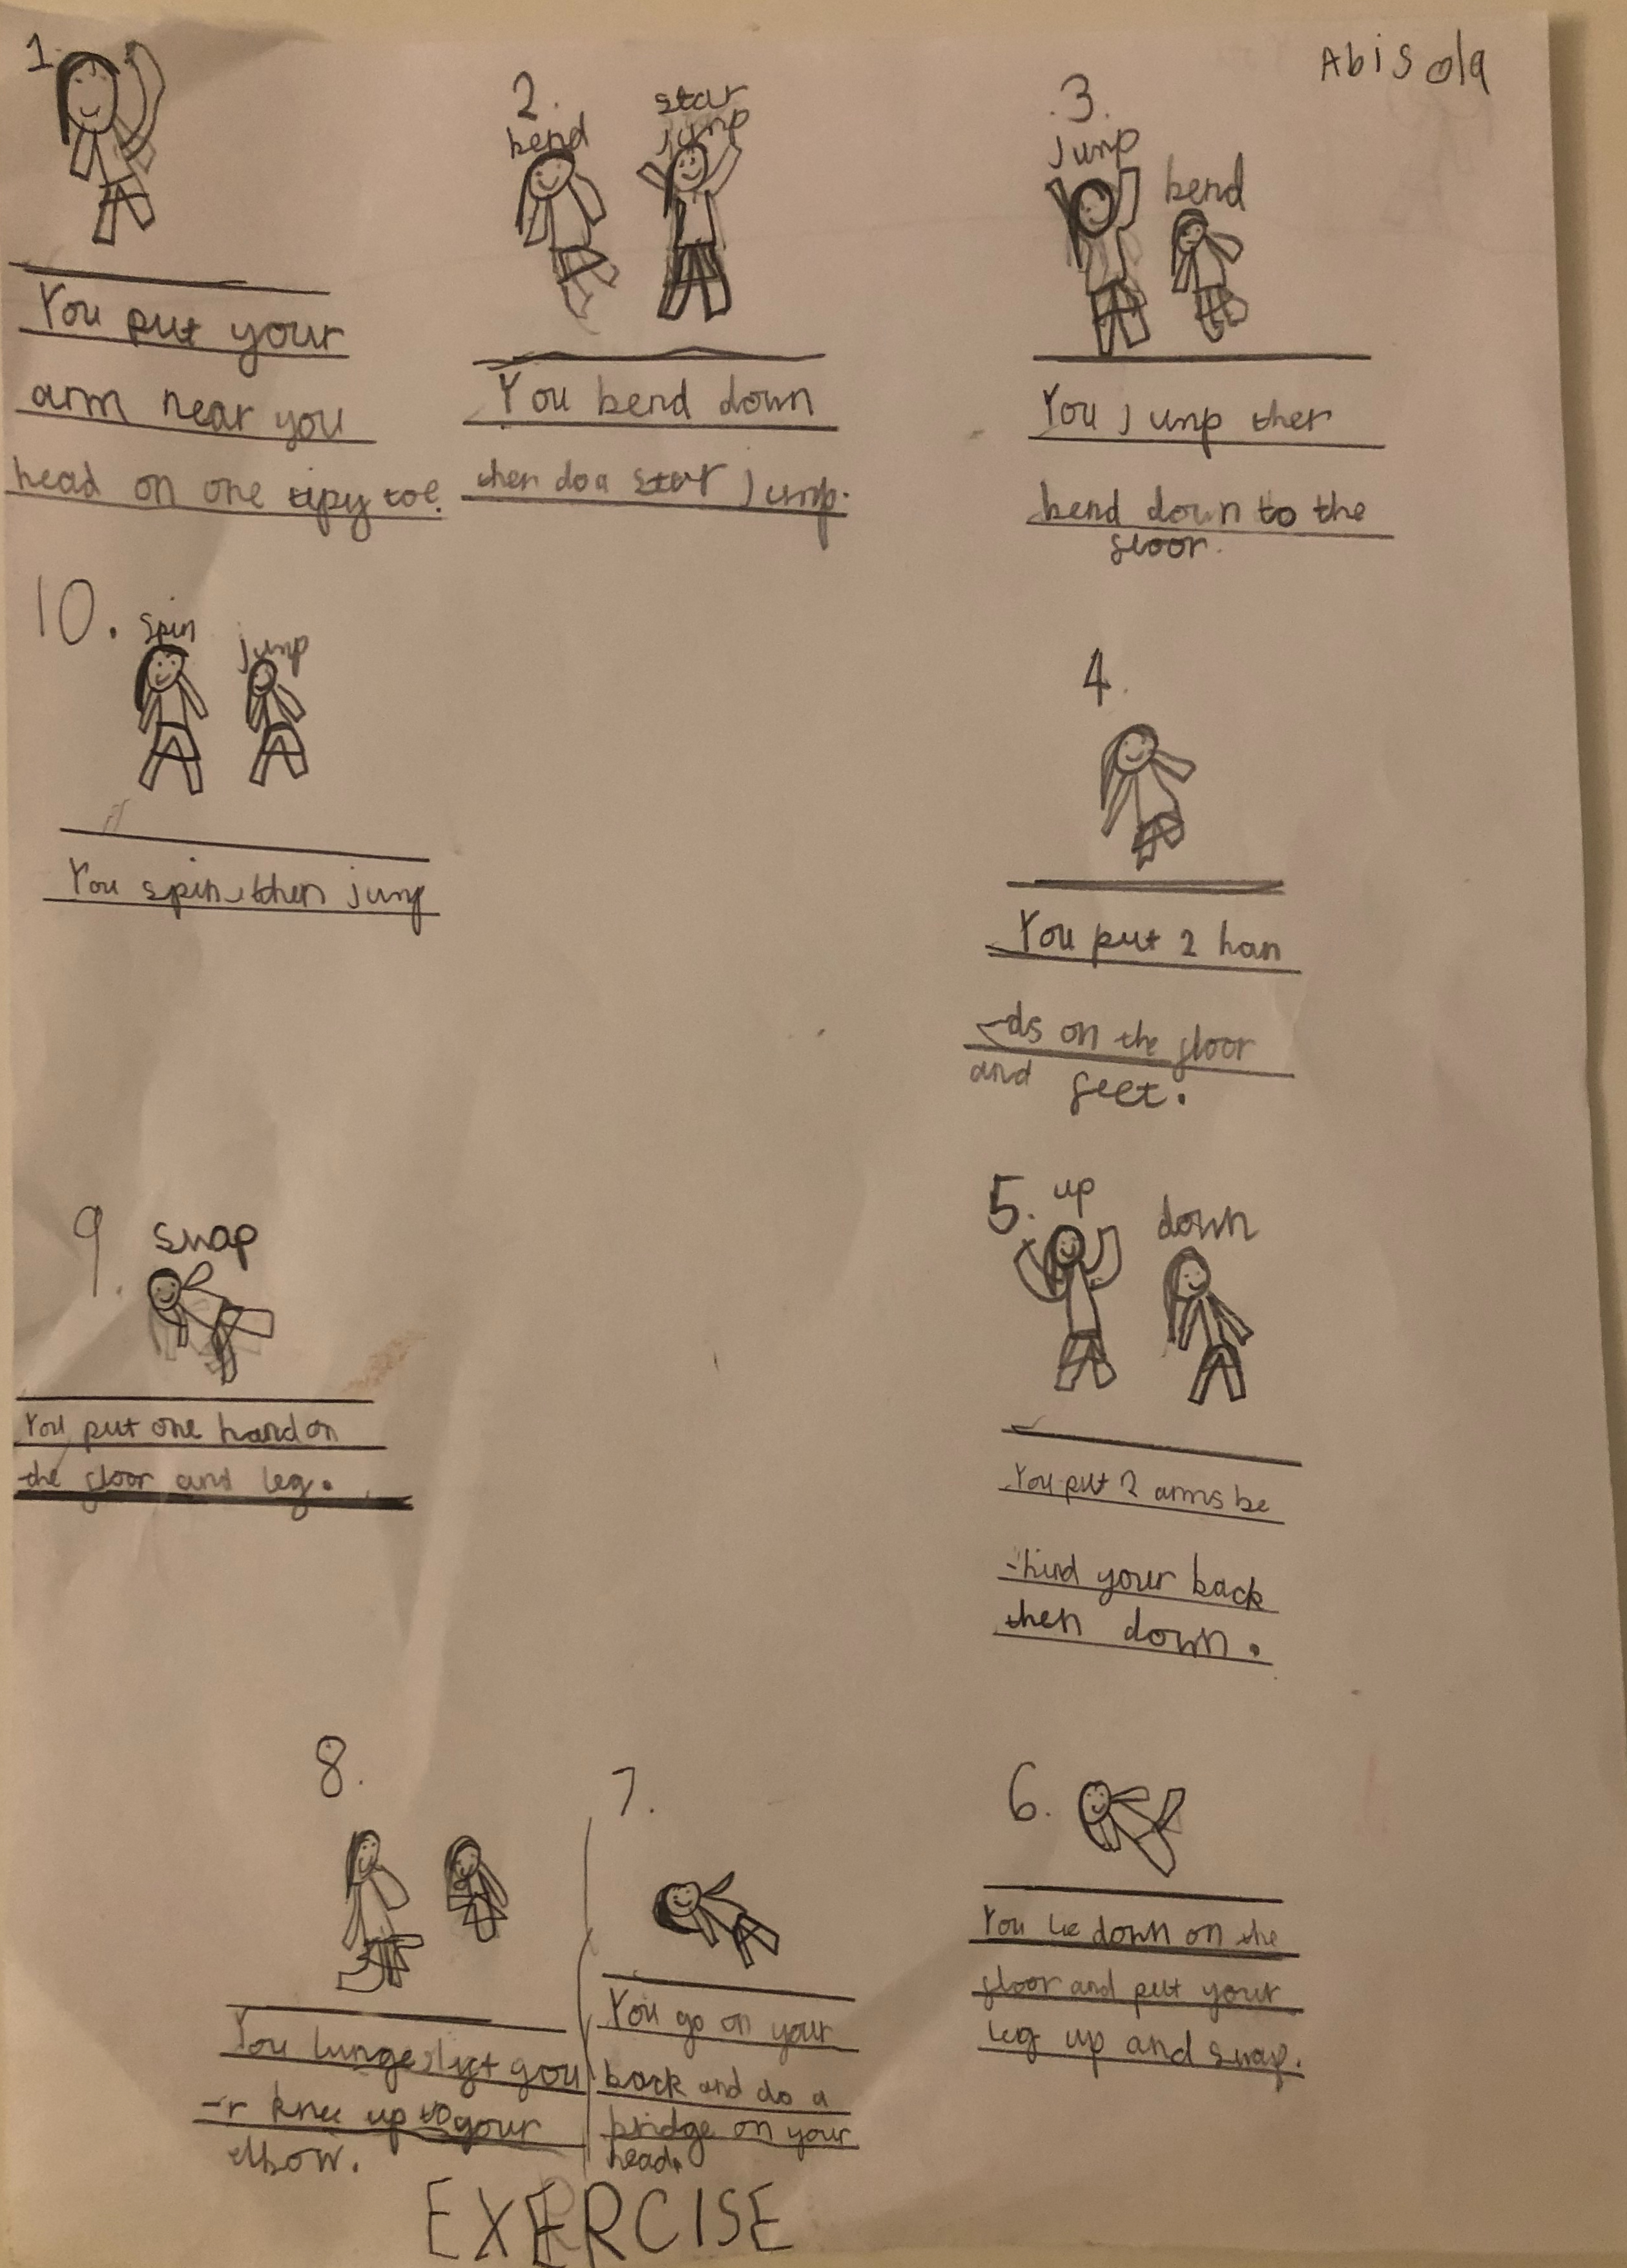 Abisola
1.
You put your
arm near you
head on one tipy toe.
2.
bend
star
jump
You bend down
then do a star jump.
3.
jump
bend
You jump then
bend down to the
floor.
4.
You put 2 han
-ds on the floor
and feet.
5. up
down
You put 2 arms be
-hind your back
then down.
6.
You lie down on the
floor and put your
leg up and swap.
7.
You go on your
back and do a
bridge on your
head.
8.
You lunge, lift you
-r knee up to your
elbow.
9. swap
You put one hand on
the floor and leg.
10. spin
jump
You spin, then jump
EXERCISE